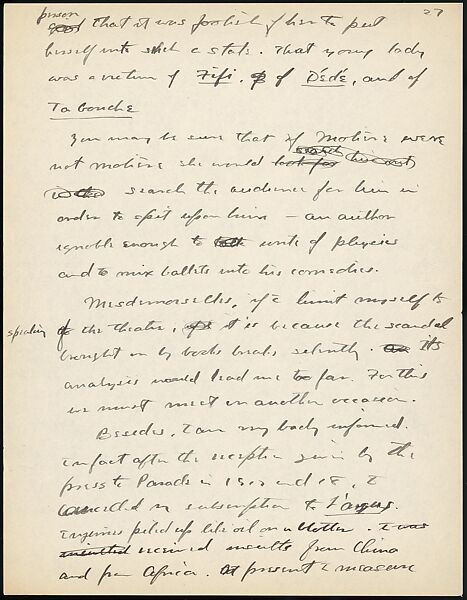 27
person
that it was foolish of her to put
herself into such a state. That young lady
was a victim of Fifi, of Dédé, and of
Tabouche
You may be sure that if Molière were
not Molière she would search
search the audience for him in
order to spit upon him — an author
ignoble enough to write of physics
and to mix ballets into his comedies.
Mesdemoiselles, if I limit myself to
speaking of the theatre, it is because the scandal
brought on by books breaks silently. Its
analysis would lead me too far. For this
we must meet on another occasion.
Besides, I am very badly informed.
In fact after the reception given by the
press to Parade in 1917 and 18, I
cancelled my subscription to L'argus.
Injuries piled up like oil on a blotter. I was
insulted received insults from China
and from Africa. At present I measure